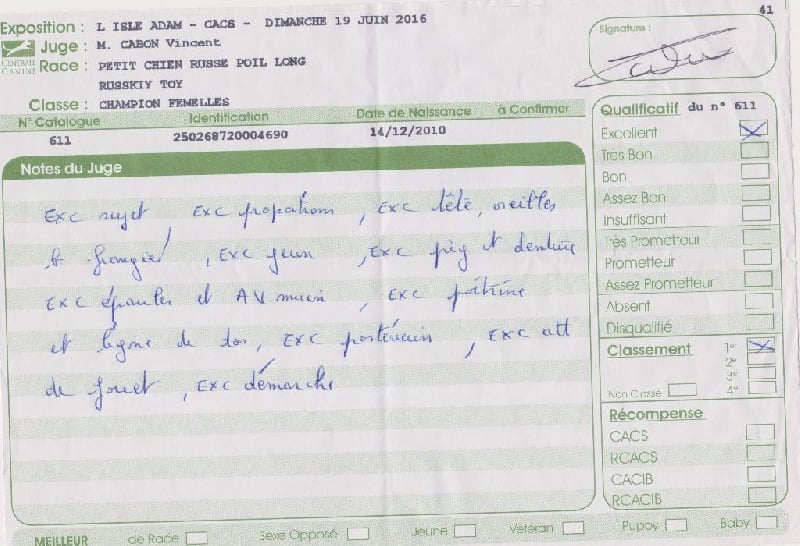 41
Exposition : L ISLE ADAM - CACS - DIMANCHE 19 JUIN 2016
Signature :
Juge : M. CABON Vincent
CENTRALE CANINE
Race : PETIT CHIEN RUSSE POIL LONG
RUSSKIY TOY
Classe : CHAMPION FEMELLES
N° Catalogue Identification Date de Naissance à Confirmer
611 250268720004690 14/12/2010
Notes du Juge
Exc sujet Exc proportions, Exc tête, oreilles
frangées, Exc yeux, Exc pig et denture
Exc épaules et AV main, Exc poitrine
et ligne de dos, Exc postérieurs, Exc att
de fouet, Exc démarche
Qualificatif du n° 611
Excellent
Très Bon
Bon
Assez Bon
Insuffisant
Très Prometteur
Prometteur
Assez Prometteur
Absent
Disqualifié
Classement 1er
2e
3e
Non Classé 4e
Récompense
CACS
RCACS
CACIB
RCACIB
MEILLEUR de Race Sexe Opposé Jeune Vétéran Puppy Baby